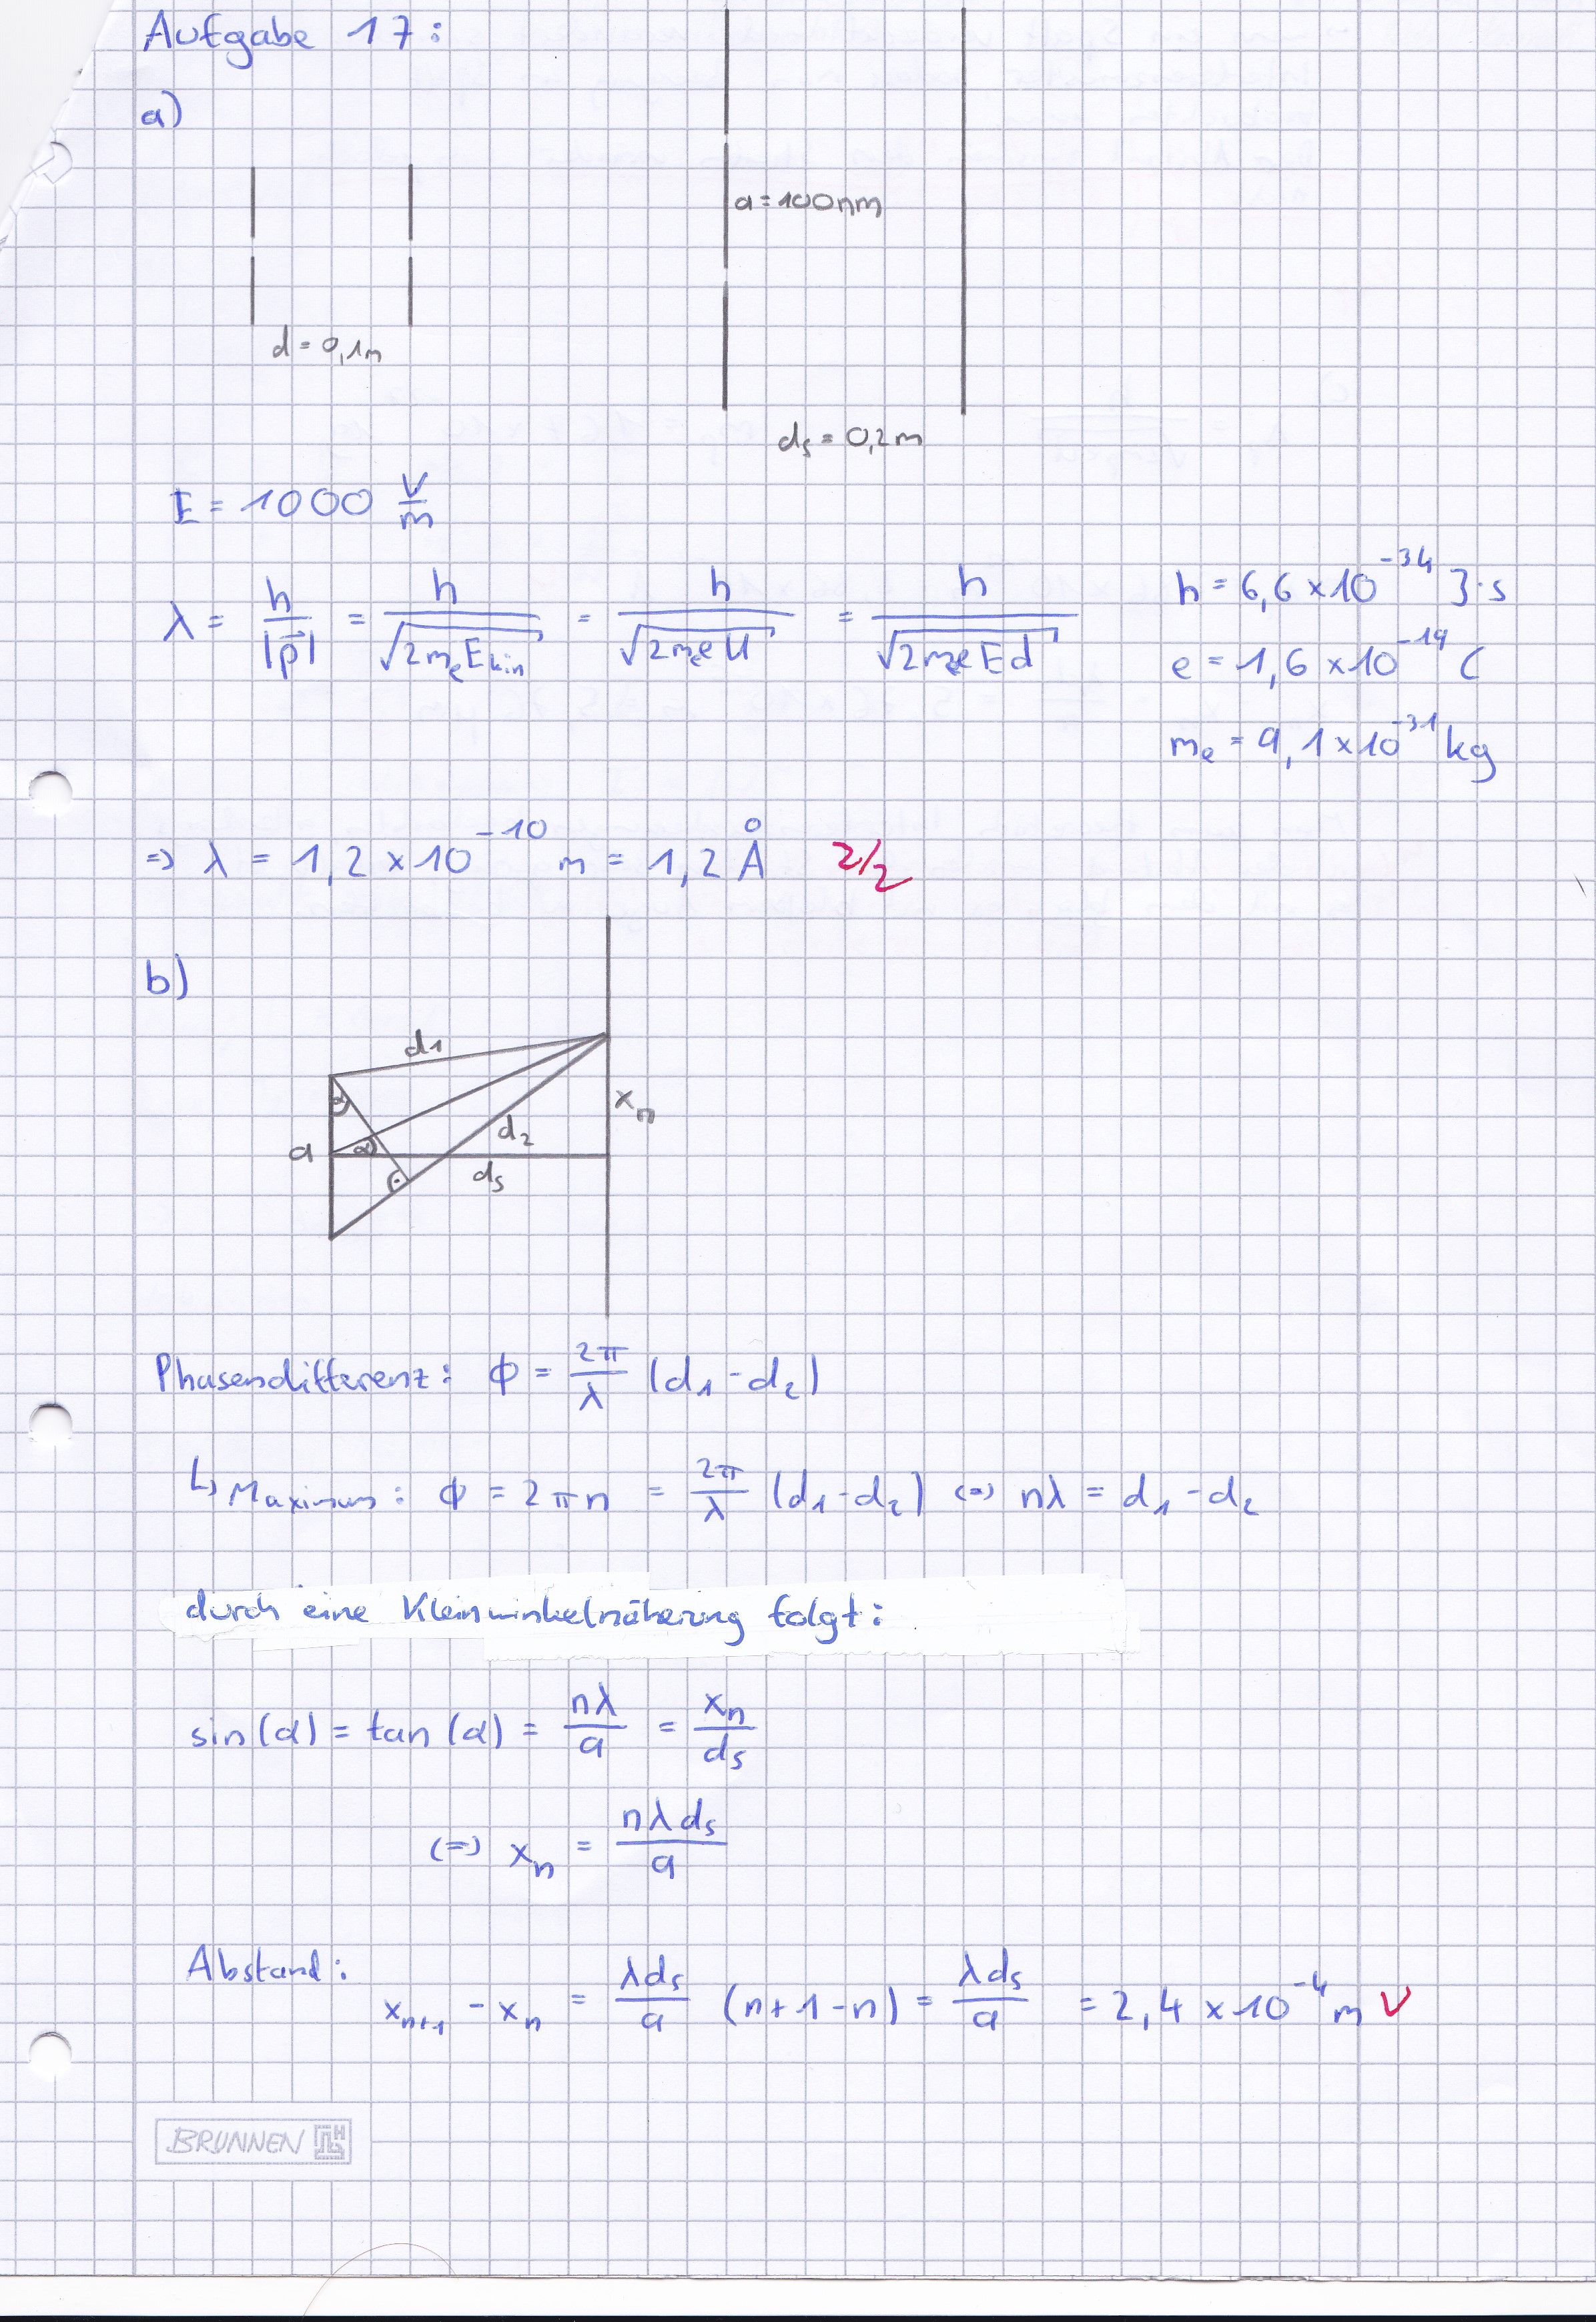 Aufgabe 17:
a)
a = 100nm
d = 0,1m
ds = 0,2m
E = 1000 V/m
λ = h/|p⃗| = h/√(2meEkin) = h/√(2meeU) = h/√(2meeEd)
h = 6,6 × 10^-34 J·s
e = 1,6 × 10^-19 C
me = 9,1 × 10^-31 kg
=> λ = 1,2 × 10^-10 m = 1,2 Å 2/2
b)
d1
α
xn
a
α
d2
ds
Phasendifferenz: ϕ = 2π/λ (d1 - d2)
↳ Maximum: ϕ = 2πn = 2π/λ (d1 - d2) <=> nλ = d1 - d2
durch eine Kleinwinkelnäherung folgt:
sin(α) = tan(α) = nλ/a = xn/ds
<=> xn = nλds/a
Abstand:
xn+1 - xn = λds/a (n+1-n) = λds/a = 2,4 × 10^-4 m ✓
BRUNNEN